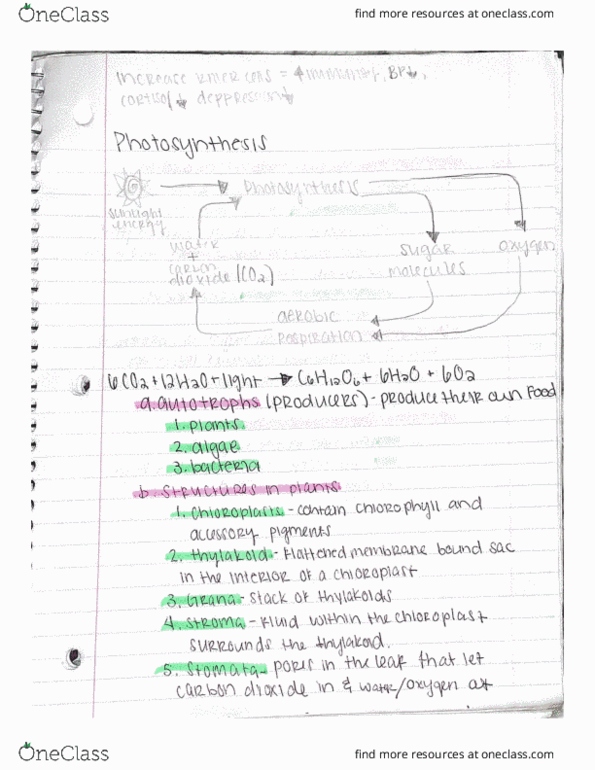 OneClass
find more resources at oneclass.com
increase killer cells = ↑ immunity, BP↓,
cortisol↓ deppression↓
Photosynthesis
Photosynthesis
sunlight
energy
water
+
carbon
dioxide (CO2)
sugar
molecules
oxygen
aerobic
respiration
6CO2+12H2O+light → C6H12O6+ 6H2O + 6O2
a. autotrophs (producers) - produce their own food
1. plants
2. algae
3. bacteria
b. structures in plants
1. chloroplasts - contain chlorophyll and
accessory pigments
2. thylakoid - flattened membrane bound sac
in the interior of a chloroplast
3. Grana - stack of thylakoids
4. stroma - fluid within the chloroplast
surrounds the thylakoid.
5. stomata - pores in the leaf that let
carbon dioxide in & water/oxygen out
OneClass
find more resources at oneclass.com